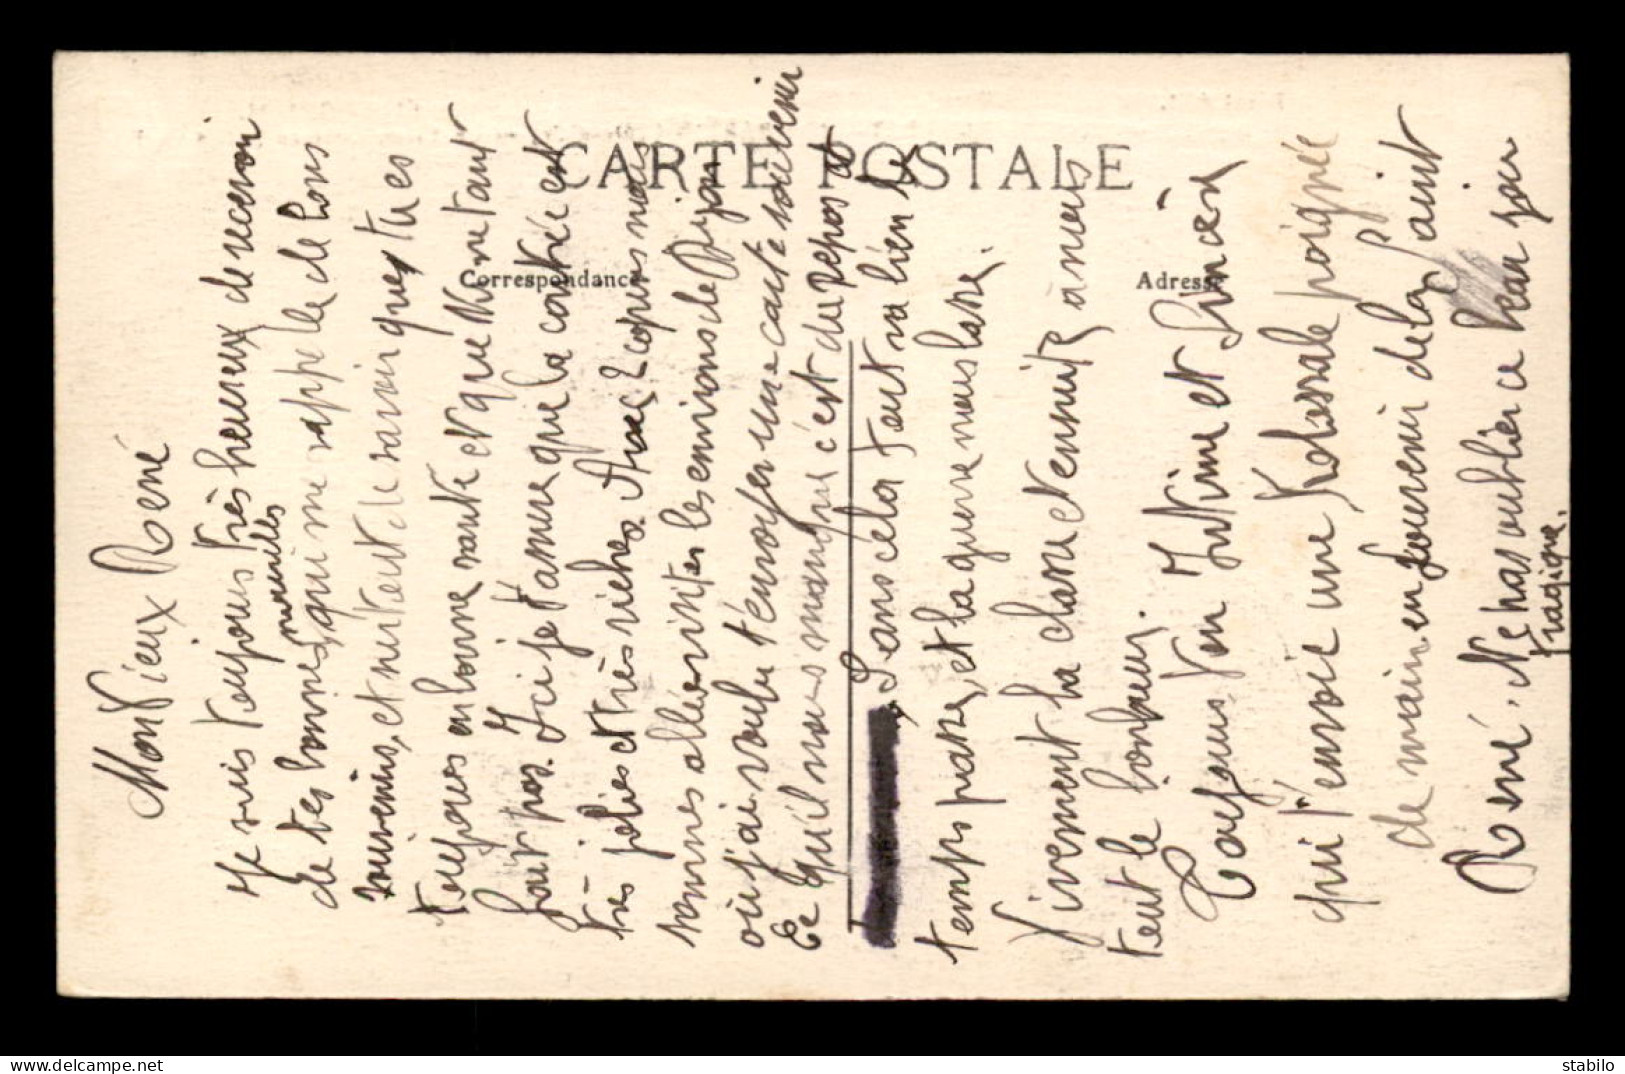 CARTE POSTALE
Correspondance
Adresse
Mon Vieux René
Je suis toujours très heureux de recevoir
de tes bonnes nouvelles qui me rappelle de bons
souvenirs, et surtout de savoir que tu es
toujours en bonne santé et que tu ne t'en
fait pas. Ici je t'assure que la contrée est
très jolies et très riches. Avec 2 copains nous
sommes allé visiter les environs de Dijon
où j'ai voulu t'envoyer une carte souvenir
Ce qu'il nous manque c'est du repos et
Sans cela tout va bien le
temps passe, et la guerre nous lasse.
Vivement la classe et ensuite à nous
tout le bonheur.
Toujours Ton Intime et Sincère
qui t'envoie une Kolossale poignée
de main en souvenir de la Saint
René. N'e pas oublier ce beau jour
tragique.
stabilo